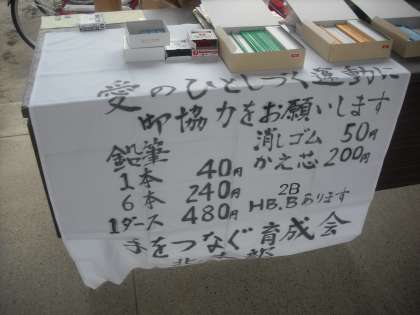 愛のひとしづく運動に
御協力をお願いします
鉛筆
1本 40円
6本 240円
1ダース 480円
消しゴム 50円
かえ芯 200円
2B
HB.Bあります
手をつなぐ育成会